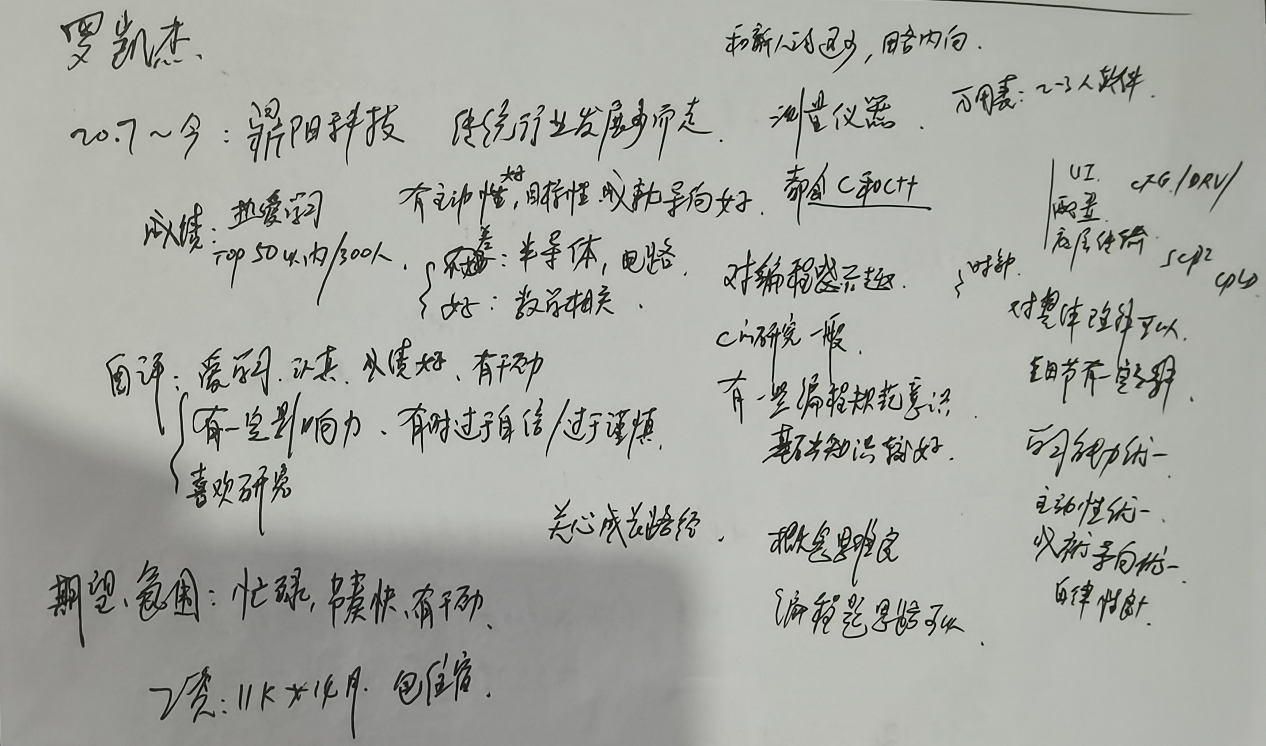 罗凯杰
和新人沟通少，略内向.
20.7~今：鼎阳科技 传统行业发展多而走. 测量仪器. 万用表：2-3人软件.
成绩：热爱学习
Top 50以内/300人.
有主动性好,目标性.成就导向好. 都会C和C++
差：半导体，电路.
好：数学相关.
对编程感兴趣.
C的研究一般.
有一些编程规范意识.
基础知识较好.
UI. CFG/DRV/
配置
底层传输. SCPI
CPLD
时钟.
对整体理解可以.
细节有一定了解
自评：爱学习.认真.成绩好、有干劲
有一定影响力、有时过于自信/过于谨慎.
喜欢研究
关心成长路径.
概念思维良
编程题思路可以.
学习能力优-
主动性优-.
成就导向优-
自律性
期望、氛围：忙碌，节奏快、有干劲.
工资：11K×14月. 包住宿.